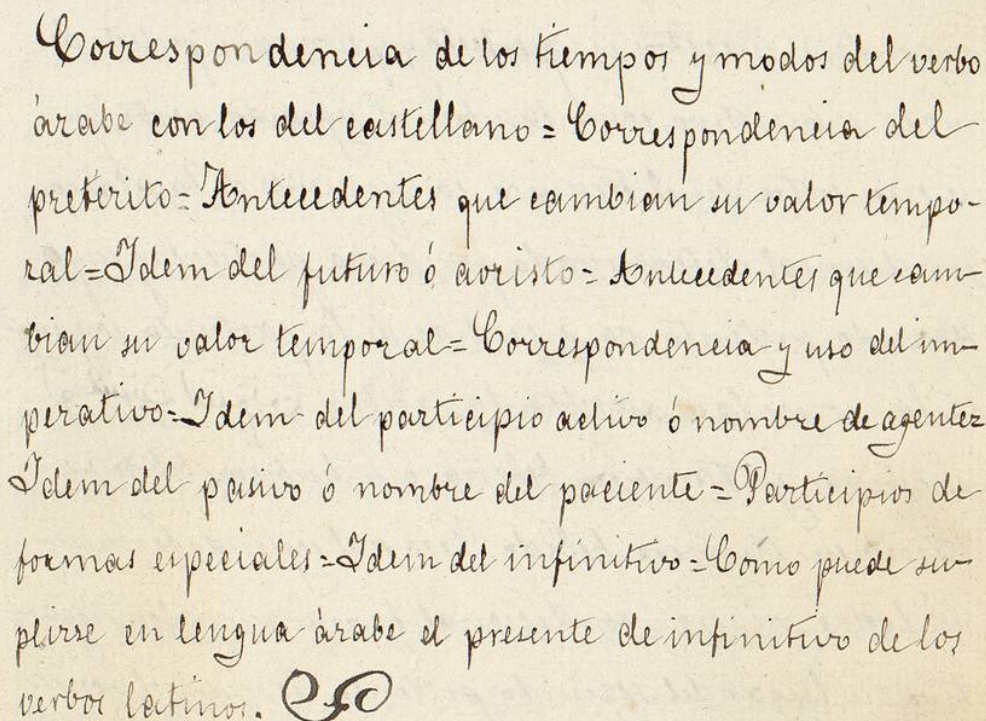 Correspondencia de los tiempos y modos del verbo
árabe con los del castellano = Correspondencia del
preterito = Antecedentes que cambian su valor tempo-
ral = Idem del futuro ó aoristo = Antecedentes que cam-
bian su valor temporal = Correspondencia y uso del im-
perativo = Idem del participio activo ó nombre de agente =
Idem del pasivo ó nombre del paciente = Participios de
formas especiales = Idem del infinitivo = Como puede su-
plirse en lengua árabe el presente de infinitivo de los
verbos latinos.